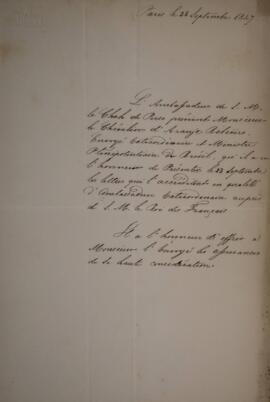 Paris le 28 Septembre 1847
L'Ambassadeur de S. M.
le Chah de Perse prévient Monsieur
le Chevalier d'Araujo Ribeiro,
Envoyé Extraordinaire et Ministre
Plénipotentiaire du Brésil, qu'il a eu
l'honneur de Présenter le 23 Septembre
les lettres qui l'accréditent en qualité
d'Ambassadeur Extraordinaire auprès
de S. M. le Roi des Français
Il a l'honneur d'offrir à
Monsieur l'Envoyé les assurances
de sa haute considération.